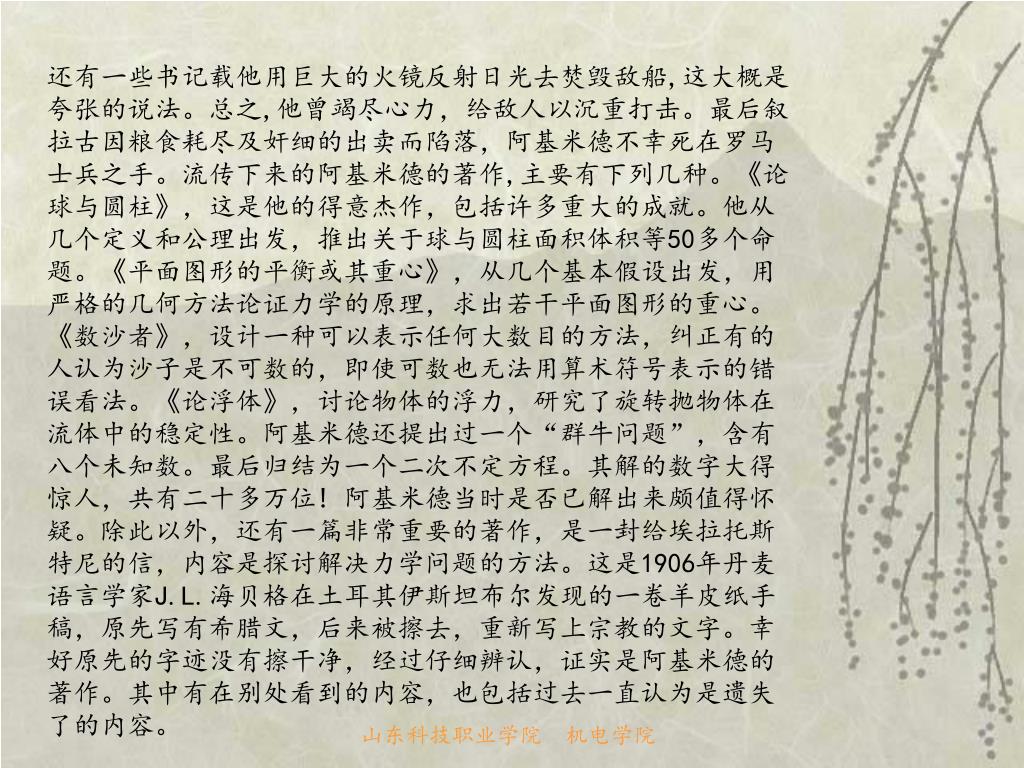 还有一些书记载他用巨大的火镜反射日光去焚毁敌船,这大概是
夸张的说法。总之,他曾竭尽心力，给敌人以沉重打击。最后叙
拉古因粮食耗尽及奸细的出卖而陷落，阿基米德不幸死在罗马
士兵之手。流传下来的阿基米德的著作,主要有下列几种。《论
球与圆柱》，这是他的得意杰作，包括许多重大的成就。他从
几个定义和公理出发，推出关于球与圆柱面积体积等50多个命
题。《平面图形的平衡或其重心》，从几个基本假设出发，用
严格的几何方法论证力学的原理，求出若干平面图形的重心。
《数沙者》，设计一种可以表示任何大数目的方法，纠正有的
人认为沙子是不可数的，即使可数也无法用算术符号表示的错
误看法。《论浮体》，讨论物体的浮力，研究了旋转抛物体在
流体中的稳定性。阿基米德还提出过一个“群牛问题”，含有
八个未知数。最后归结为一个二次不定方程。其解的数字大得
惊人，共有二十多万位！阿基米德当时是否已解出来颇值得怀
疑。除此以外，还有一篇非常重要的著作，是一封给埃拉托斯
特尼的信，内容是探讨解决力学问题的方法。这是1906年丹麦
语言学家J.L.海贝格在土耳其伊斯坦布尔发现的一卷羊皮纸手
稿，原先写有希腊文，后来被擦去，重新写上宗教的文字。幸
好原先的字迹没有擦干净，经过仔细辨认，证实是阿基米德的
著作。其中有在别处看到的内容，也包括过去一直认为是遗失
了的内容。
山东科技职业学院　机电学院